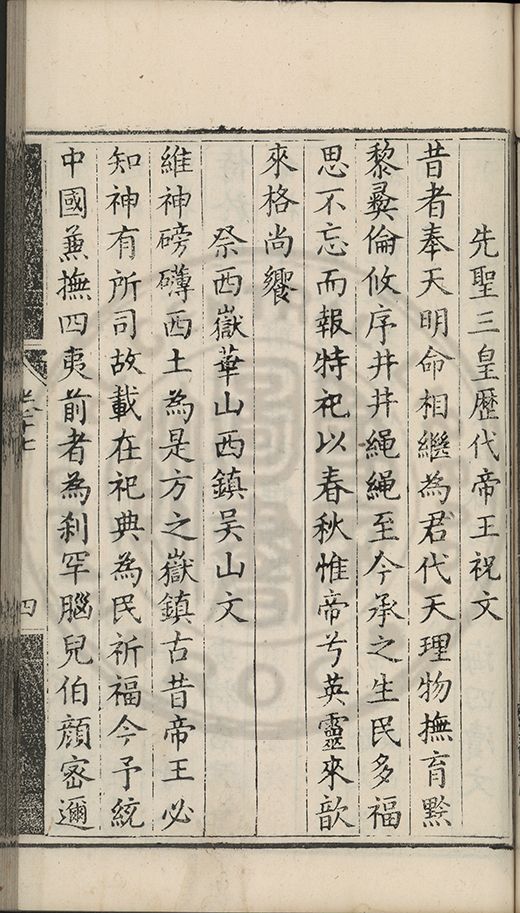 先聖三皇歷代帝王祝文
昔者奉天明命相繼為君代天理物撫育黔
黎彝倫攸序井井繩繩至今承之生民多福
思不忘而報特祀以春秋惟帝兮英靈來歆
來格尚饗
祭西嶽華山西鎮吴山文
維神磅礴西土為是方之嶽鎮古昔帝王必
知神有所司故載在祀典為民祈福今予統
中國兼撫四夷前者為剎罕腦兒伯顔宻邇
卷十七
四